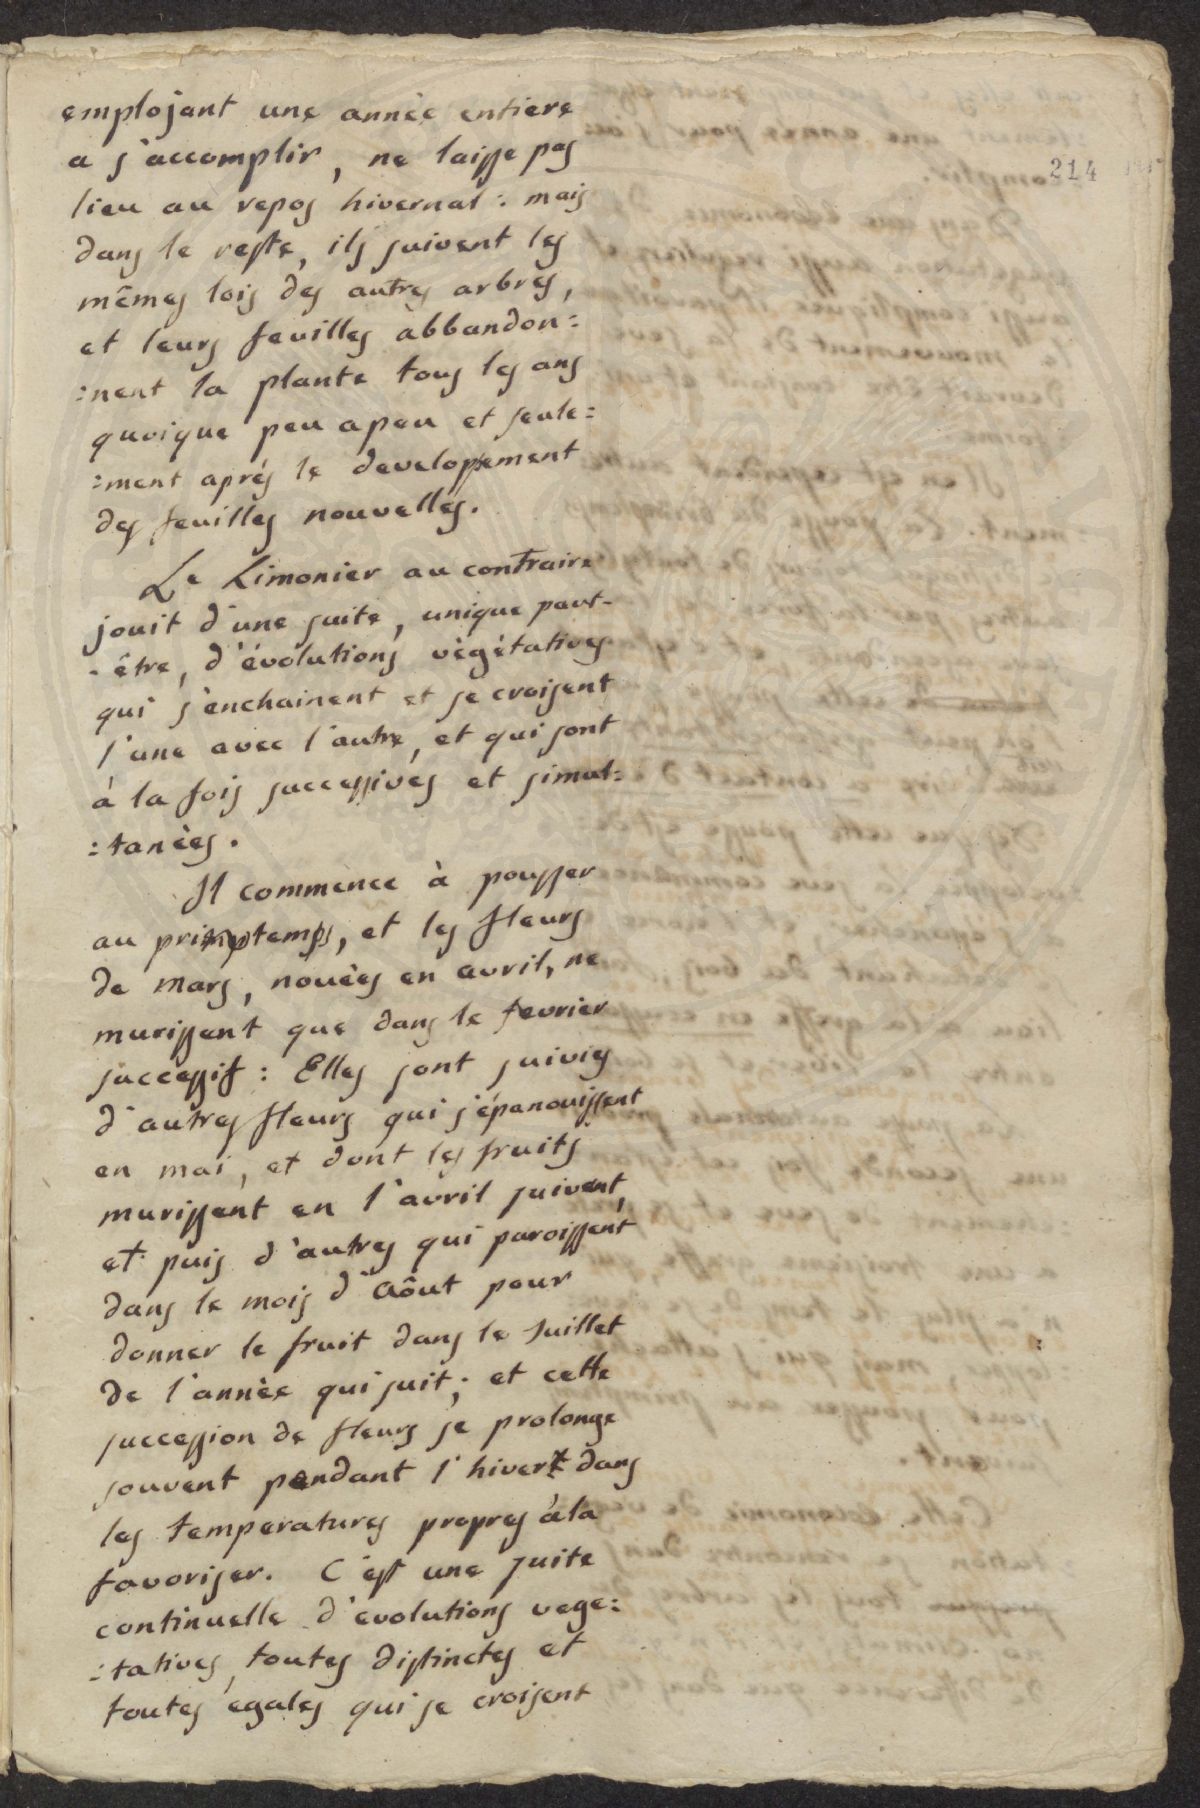 214
emplojant une annèe entiere
a s'accomplir, ne laisse pas
lieu au repos hivernal : mais
dans le reste, ils suivent les
mêmes lois des autres arbres,
et leurs feuilles àbbandon:
:nent la plante tous les ans
quoique peu a peu et seule:
:ment aprés le developpement
des feuilles nouvelles.
Le Limonier au contraire
jouit d'une suite, unique peut-
-être, d'évolutions vègètatives
qui s'enchainent et se croisent
l'une avec l'autre, et qui sont
à la fois successives et simul:
:tanèes.
Il commence à pousser
au printemps, et les fleurs
de mars, nouèes en avril, ne
murissent que dans le fevrier
successif : Elles sont suivies
d'autres fleurs qui s'épanouissent
en mai, et dont les fruits
murissent en l'avril suivent,
et puis d'autres qui paroissent
dans le mois d'Aôut pour
donner le fruit dans le Juillet
de l'annèe qui suit; et cette
succession de fleurs se prolonge
souvent pendant l'hiver dans
les temperatures propres à la
favoriser. C'est une suite
continuelle d'evolutions vege:
:tatives, toutes distinctes et
toutes égales qui se croisent